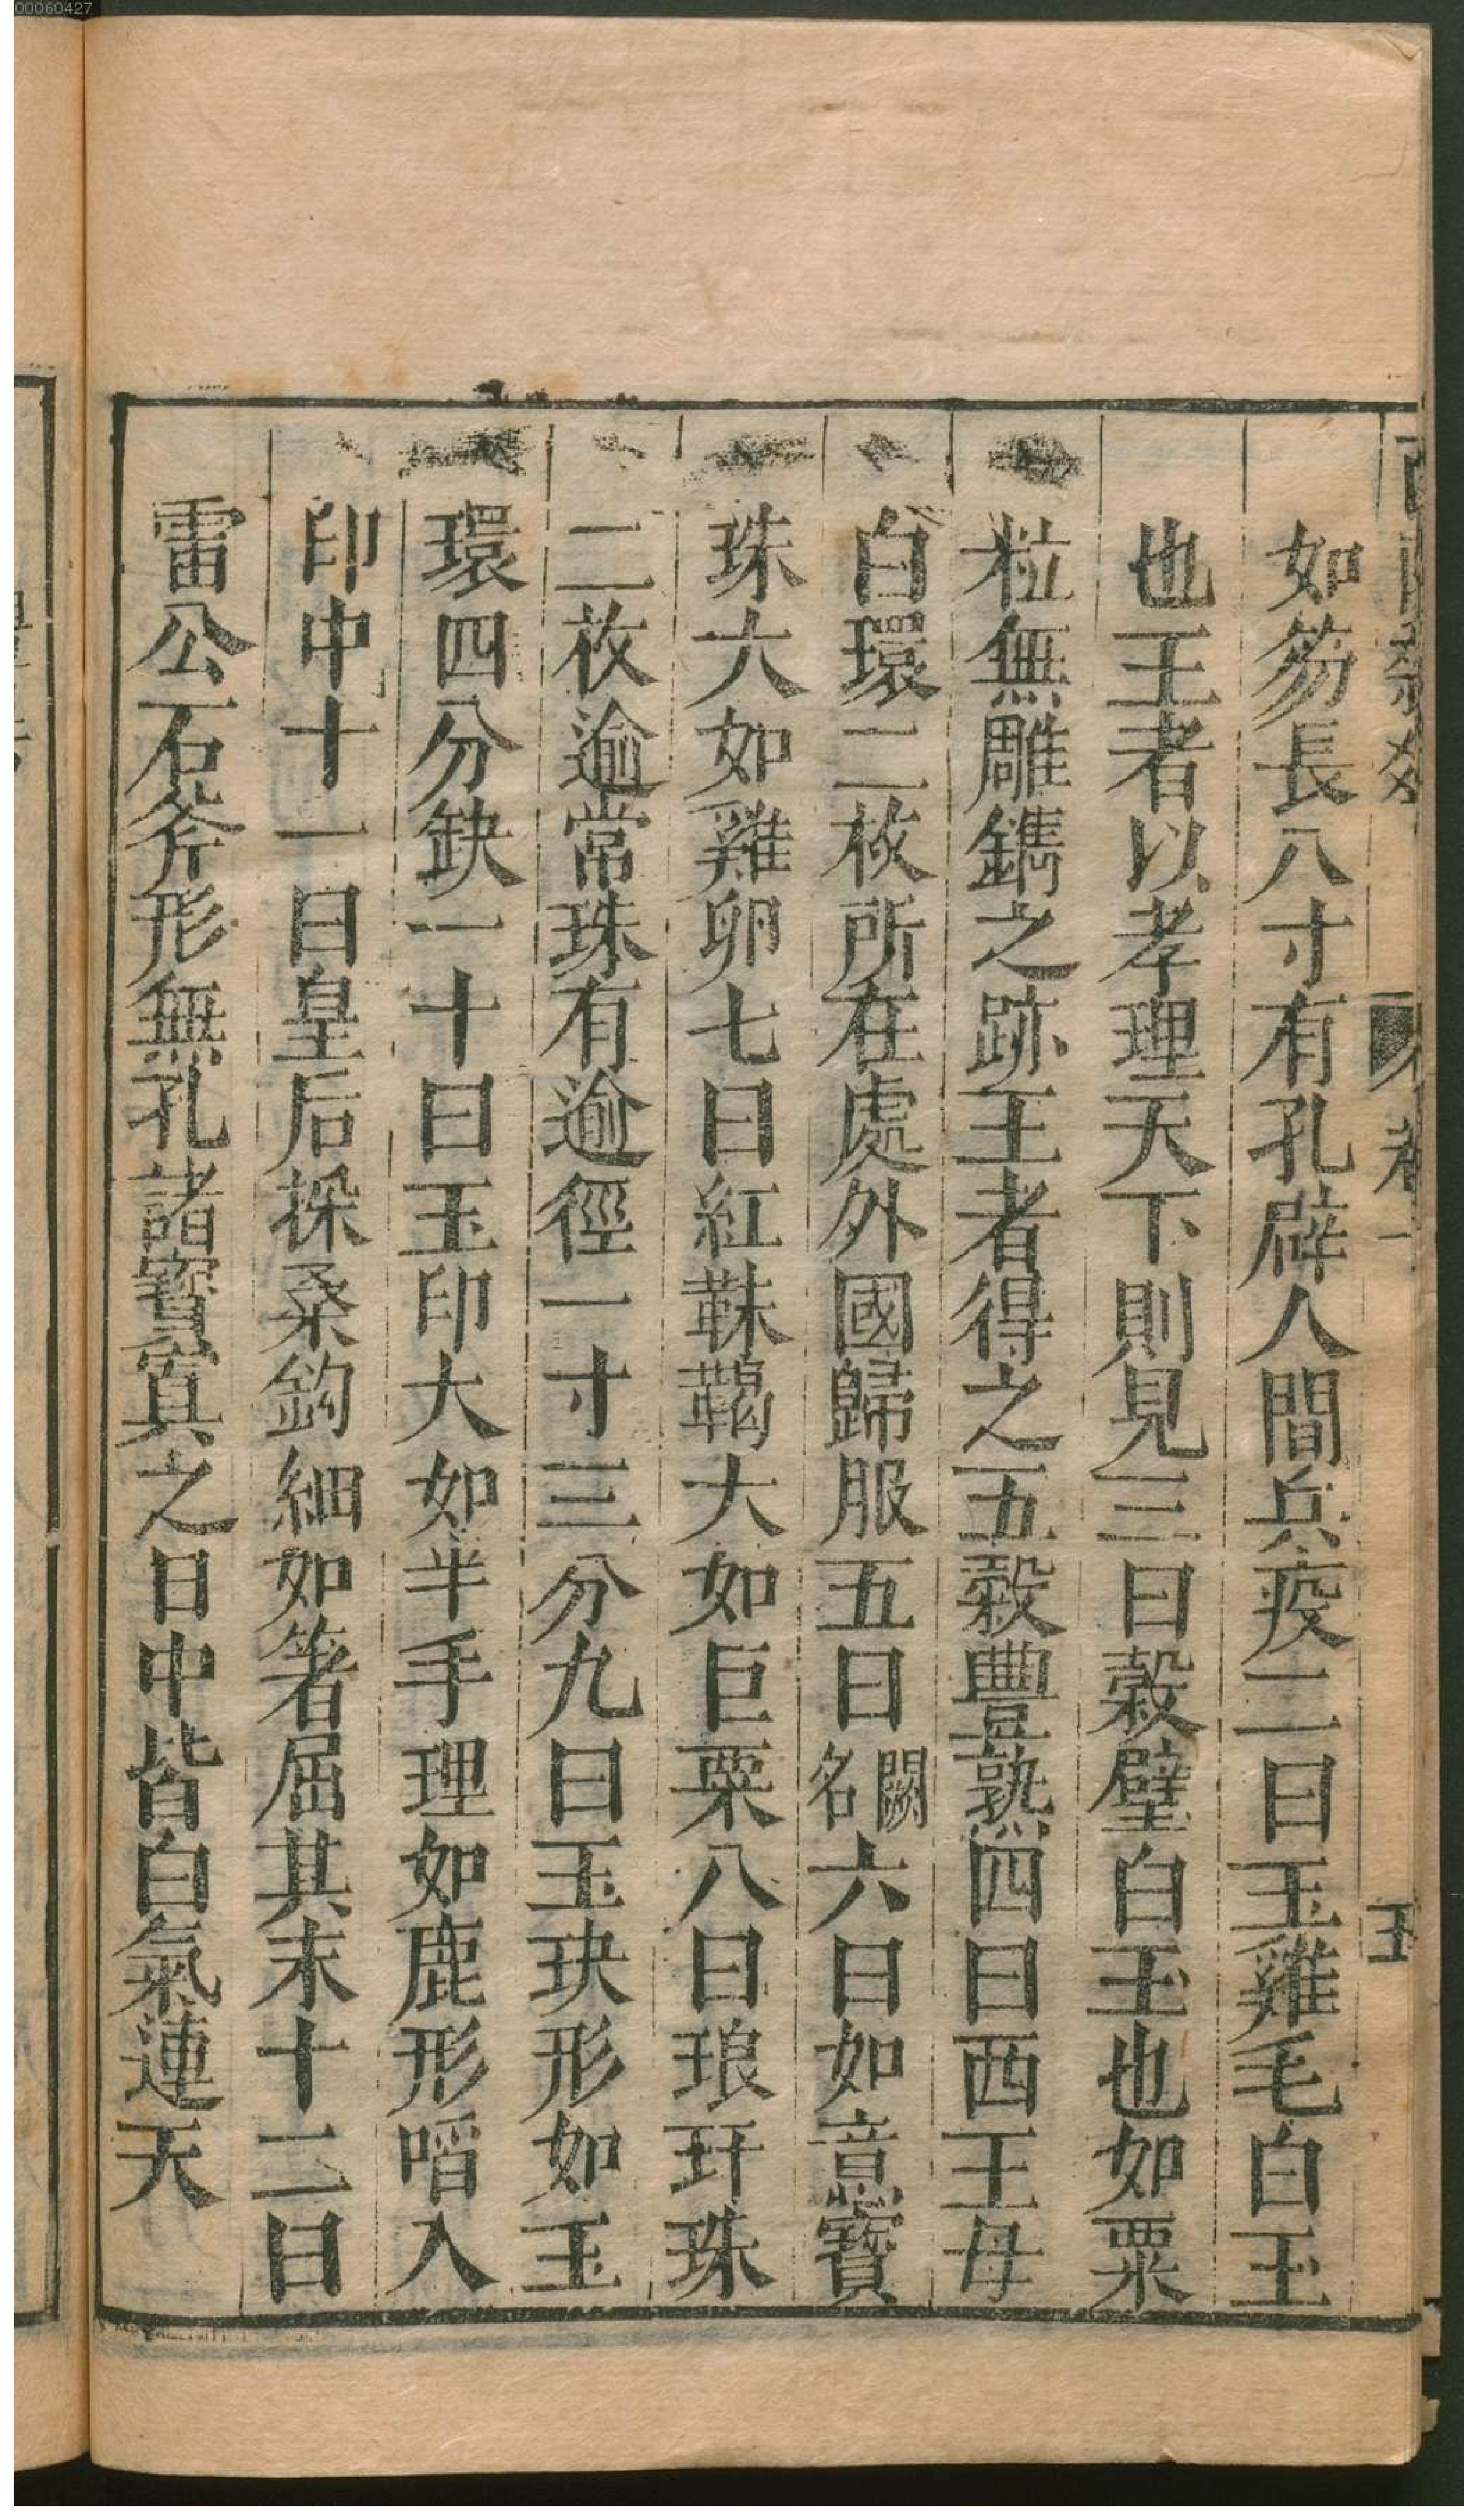 00060427
如笏長八寸有孔辟人間兵疫二曰玉雞毛白玉
也王者以孝理天下則見三曰穀璧白玉也如粟
粒無雕鐫之跡王者得之五穀豐熟四曰西王母
白環二枚所在處外國歸服五曰闕名六曰如意寶
珠大如雞卵七曰紅靺鞨大如巨栗八曰琅玕珠
二枚逾常珠有逾徑一寸三分九曰玉玦形如玉
環四分缺一十曰玉印大如半手理如鹿形㗃入
印中十一曰皇后採桑鈎細如箸屈其末十二曰
雷公石斧形無孔諸寳寘之日中皆白氣連天
卷一
五